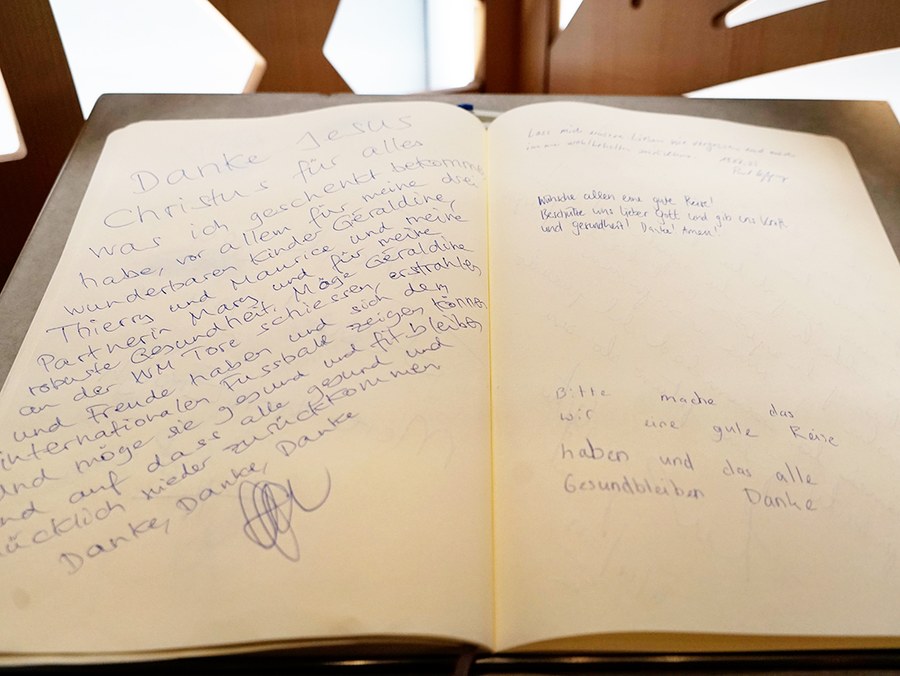 Danke Jesus
Christus für alles
was ich geschenkt bekommen
habe, vor allem für meine drei
wunderbaren Kinder Géraldine,
Thierry und Maurice und meine
Partnerin Mary und für meine
robuste Gesundheit. Möge Géraldine
an der WM Tore schiessen, erstrahlen
und Freude haben und sich dem
internationalen Fussball zeigen können
und möge sie gesund und fit bleiben
und auf dass alle gesund und
glücklich wieder zurückkommen
Danke, Danke, Danke
Lass mich meine Lieben nie vergessen und
immer
Wünsche allen eine gute Reise!
Beschütze uns lieber Gott und gib uns Kraft
und gesundheit! Danke! Amen!
Bitte mache das
wir eine gute Reise
haben und das alle
Gesundbleiben Danke